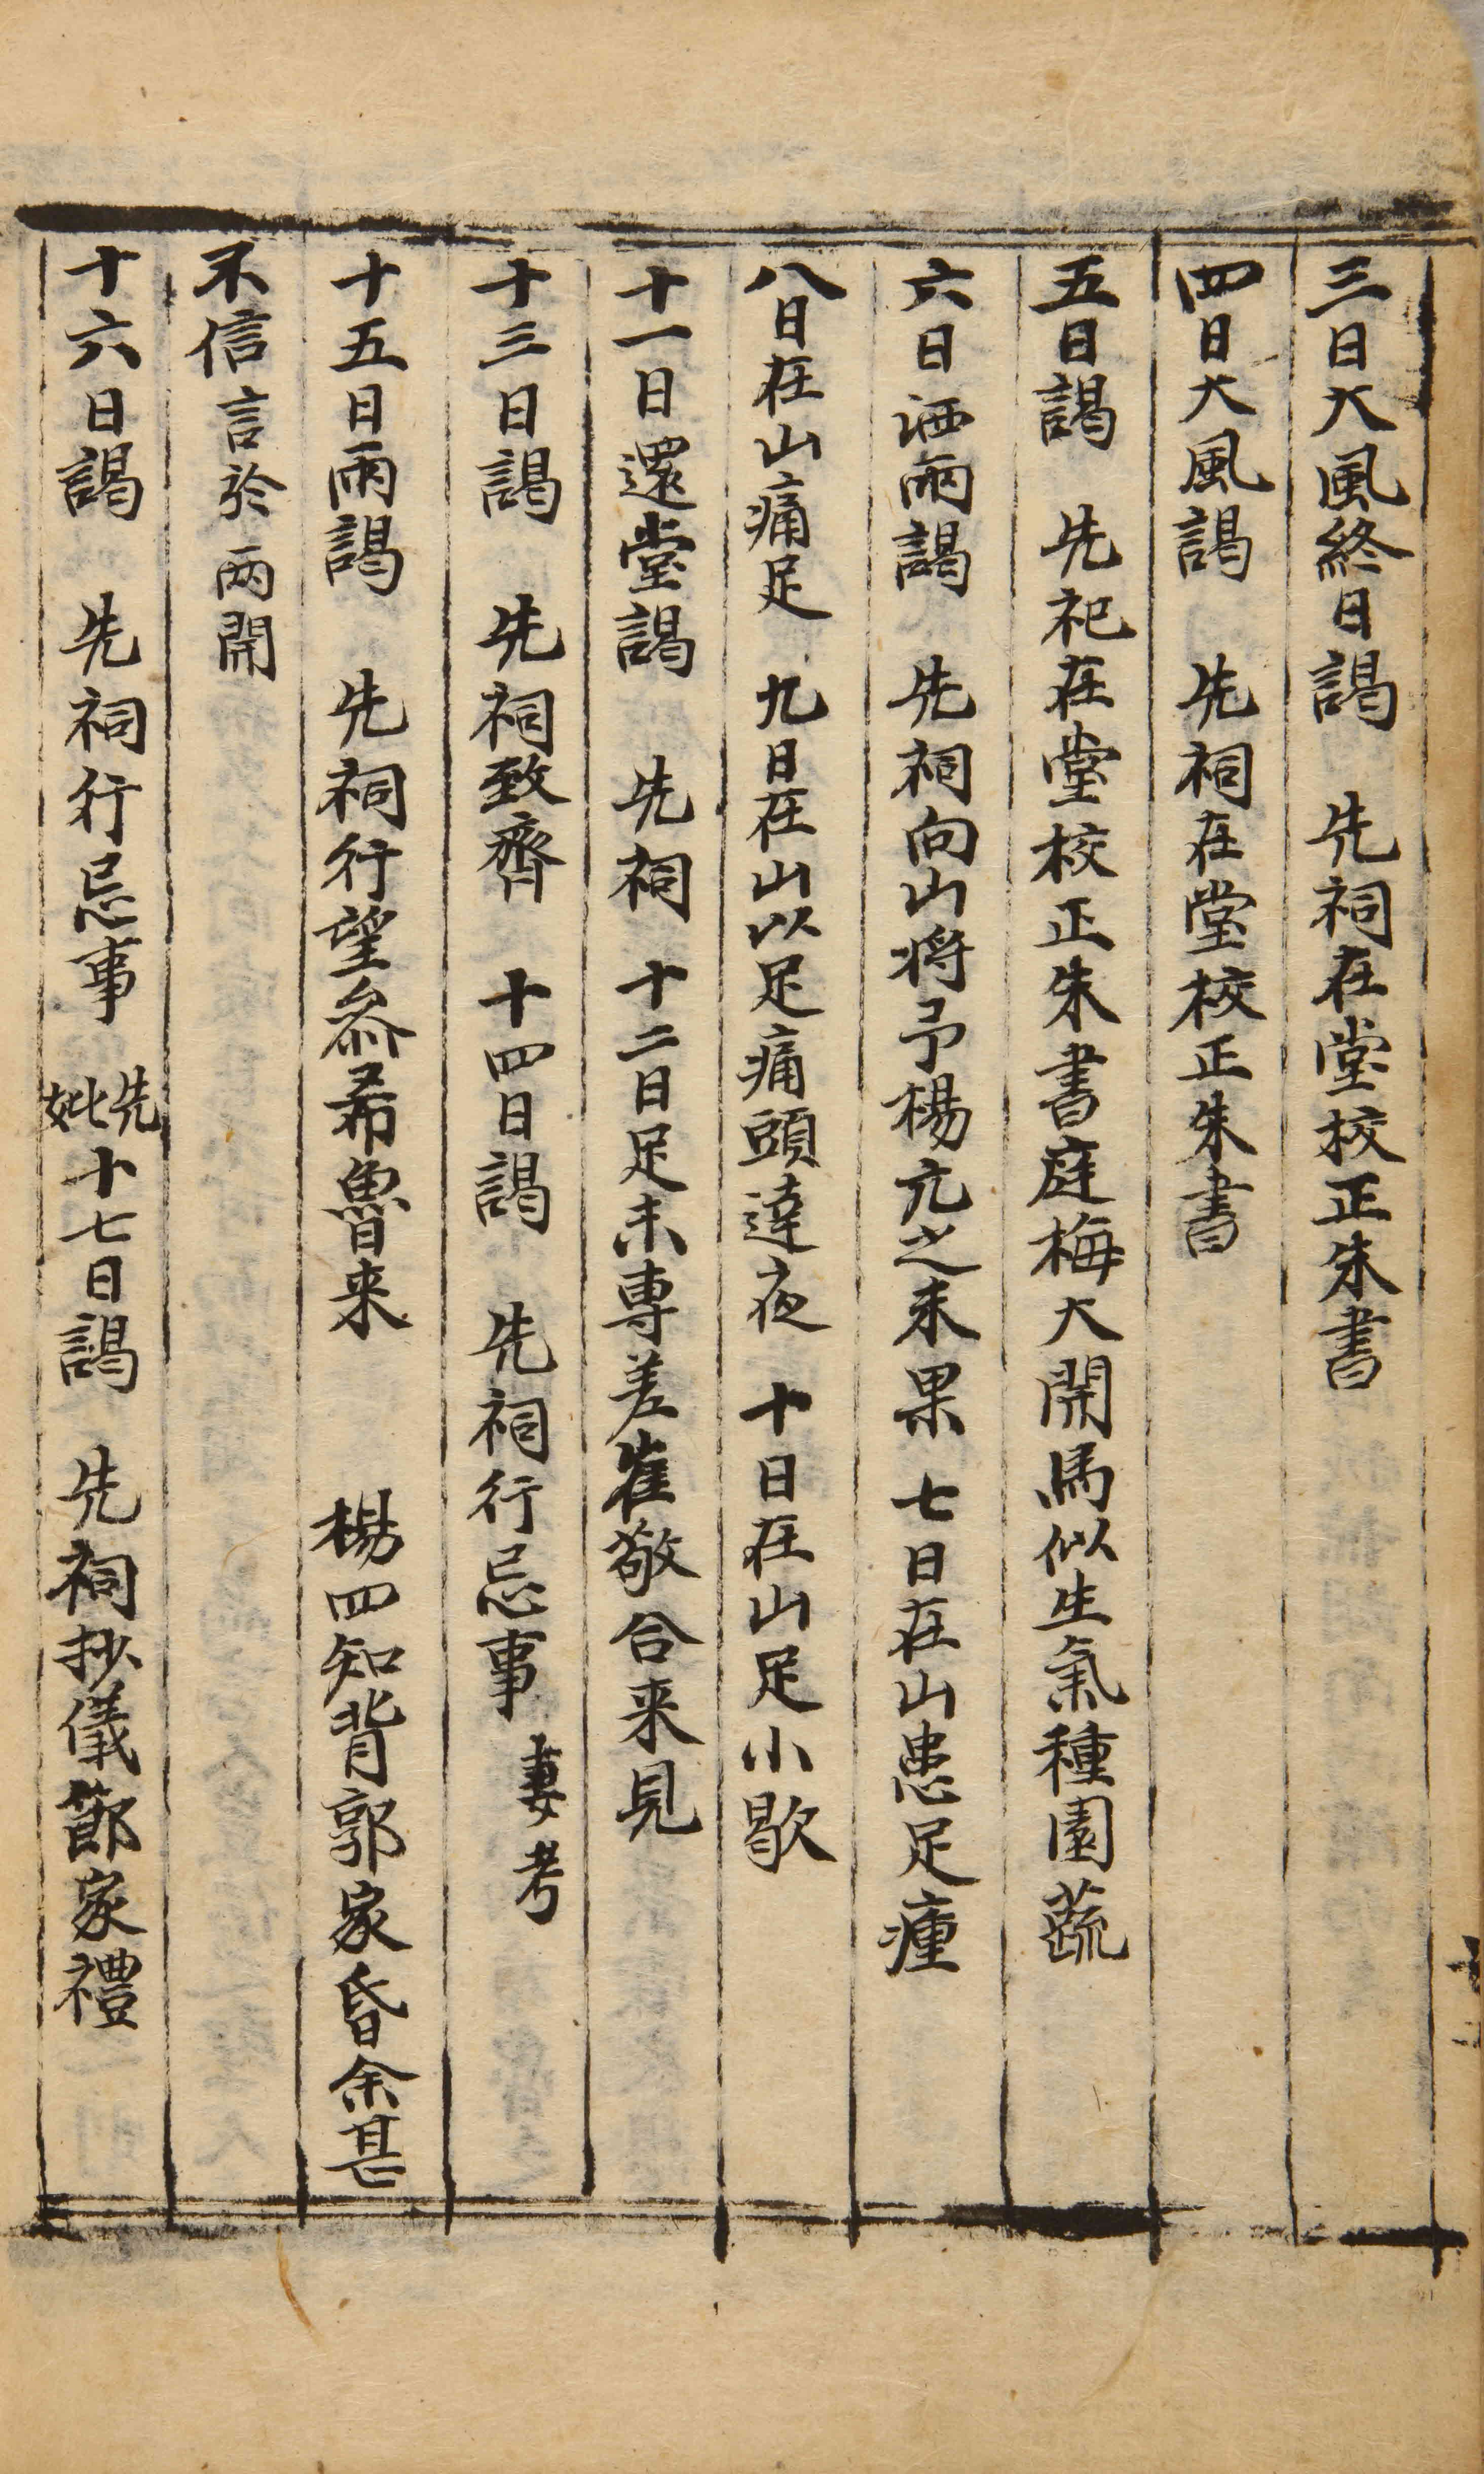 三日大風終日謁　先祠在堂校正朱書
四日大風謁　先祠在堂校正朱書
五日謁　先祀在堂校正朱書庭梅大開馬似生氣種園蔬
六日洒雨謁　先祠向山將予楊亢之未果　七日在山患足瘇
八日在山痛足　九日在山以足痛頭達夜　十日在山足小歇
十一日還堂謁　先祠　十二日足未專差崔敬合来見
十三日謁　先祠致齊　十四日謁　先祠行忌事　妻考
十五日雨謁　先祠行望叅希魯来　楊四知背郭家昏余甚
不信言於両開
十六日謁　先祠行忌事　先妣　十七日謁　先祠抄儀節家禮